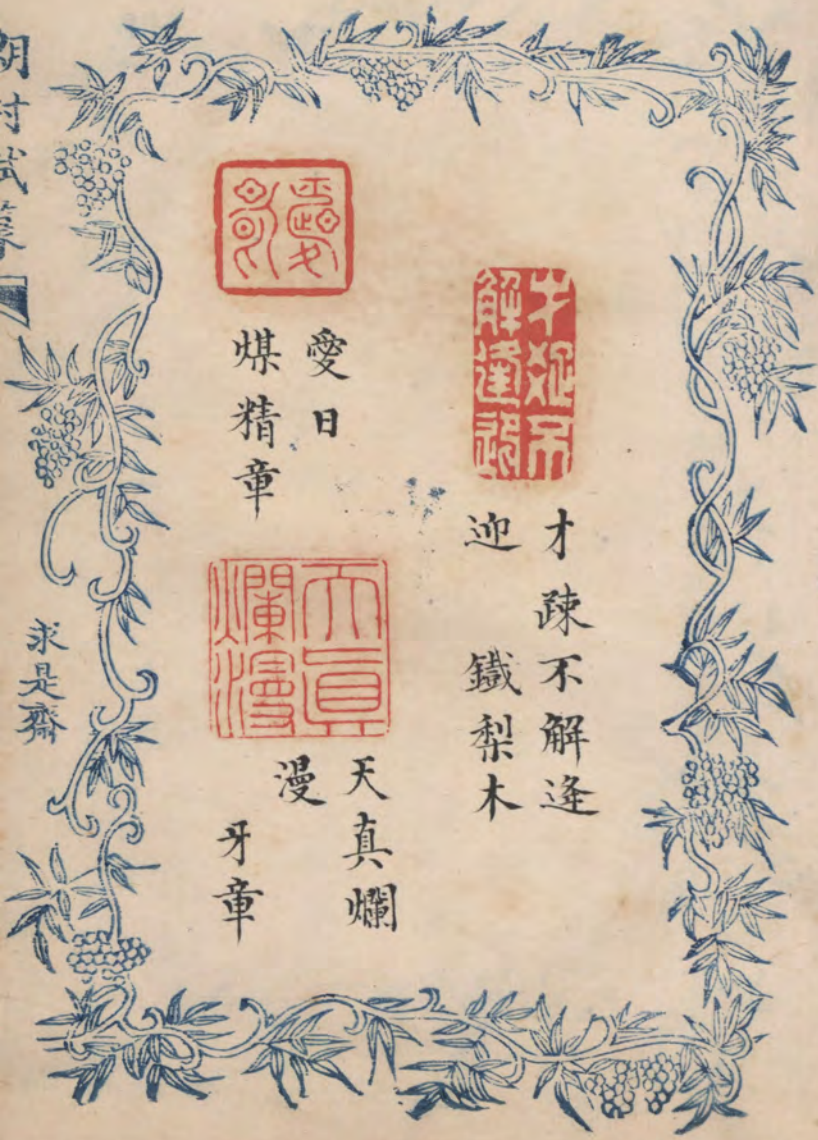 才疎不
解逢迎
才疎不解逢
迎 鐵梨木
愛日
煤精章
天真
爛漫
天真爛
漫
牙章
求是齋